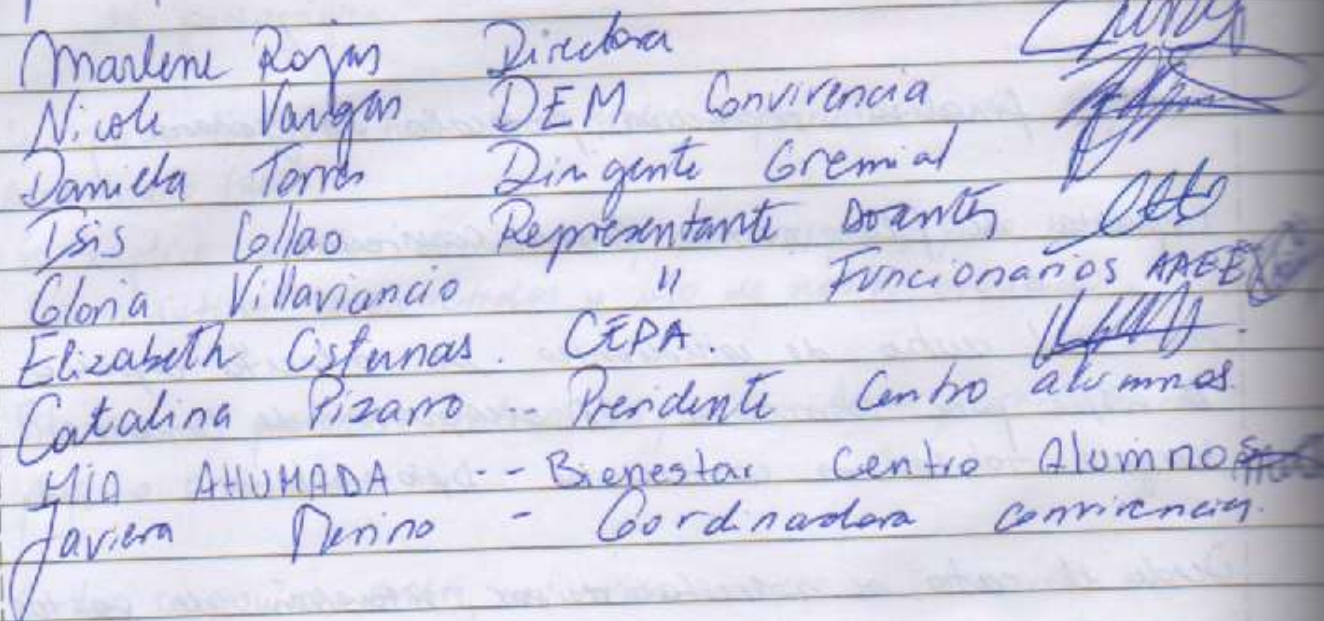 Marlene Rojas Directora
Nicole Vargas DEM Convivencia
Daniela Torres Dirigente Gremial
Isis Collao Representante Docentes
Gloria Villavicencio " Funcionarios AAEE
Elizabeth Cisternas. CEPA.
Catalina Pizarro -- Presidente Centro alumnos.
MIA AHUMADA -- Bienestar Centro Alumnos
Javiera Merino - Coordinadora convivencia.